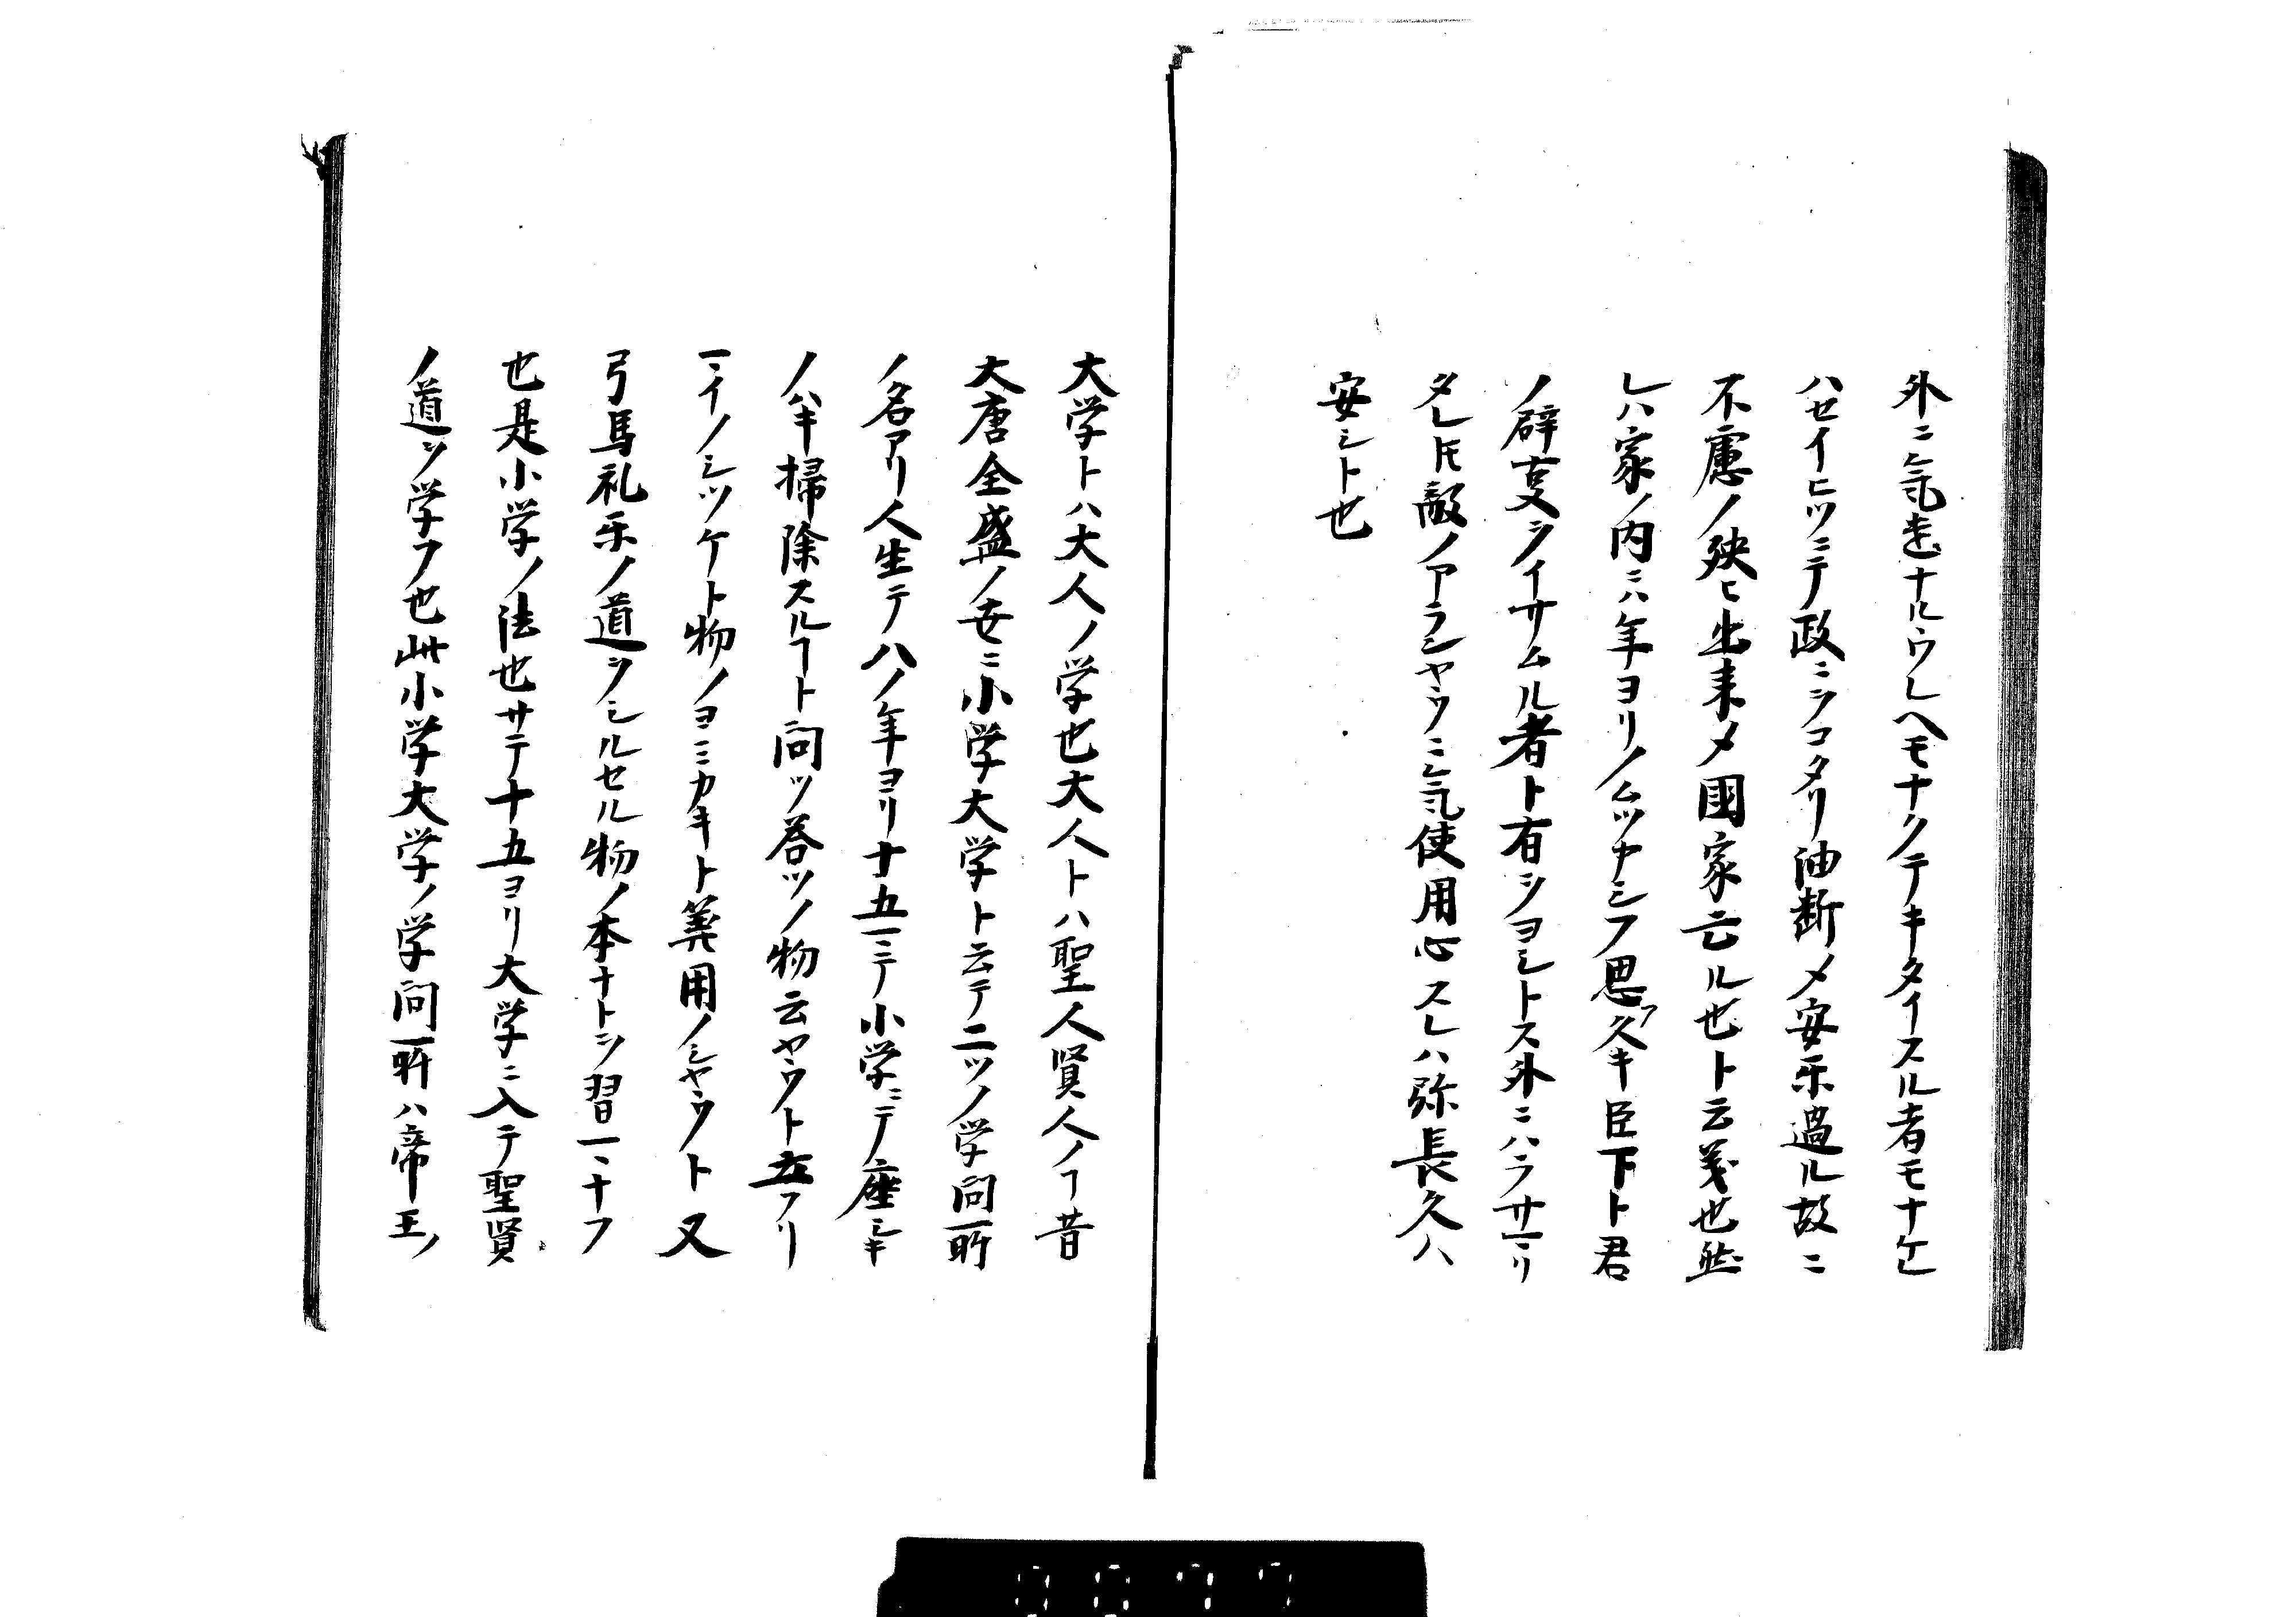 外ニ気遣ナルウレヘモナクテキタイスル者モナケレ
ハセイヒツニテ政ニヲコタリ油断メ安楽過ル故ニ
不慮ノ殃ヒ出来メ国家亡ル也ト云義也然
レハ家ノ内ニハ年ヨリノムツカシフ思フ久キ臣下ト君
ノ辟事ヲイサムル者ト有ヲヨシトス外ニハヲサマリ
タレ𪜈敵ノアラシヤウニ気使用心スレハ弥長久ハ
安シト也
大学トハ大人ノ学也大人トハ聖人賢人ノヿ昔
大唐全盛ノ世ニ小学大学ト云テ二ツノ学問所
ノ名アリ人生テ八ノ年ヨリ十五マテ小学ニテ座シキ
ノハキ掃除スルヿト問ツ答ツノ物云ヤウト立フリ
マイノシツケト物ノヨミカキト算用ノシヤウト又
弓馬礼楽ノ道ヲシルセル物ノ本ナトヲ習マナフ
也是小学ノ法也サテ十五ヨリ大学ニ入テ聖賢
ノ道ヲ学フ也此小学大学ノ学問所ハ帝王ノ